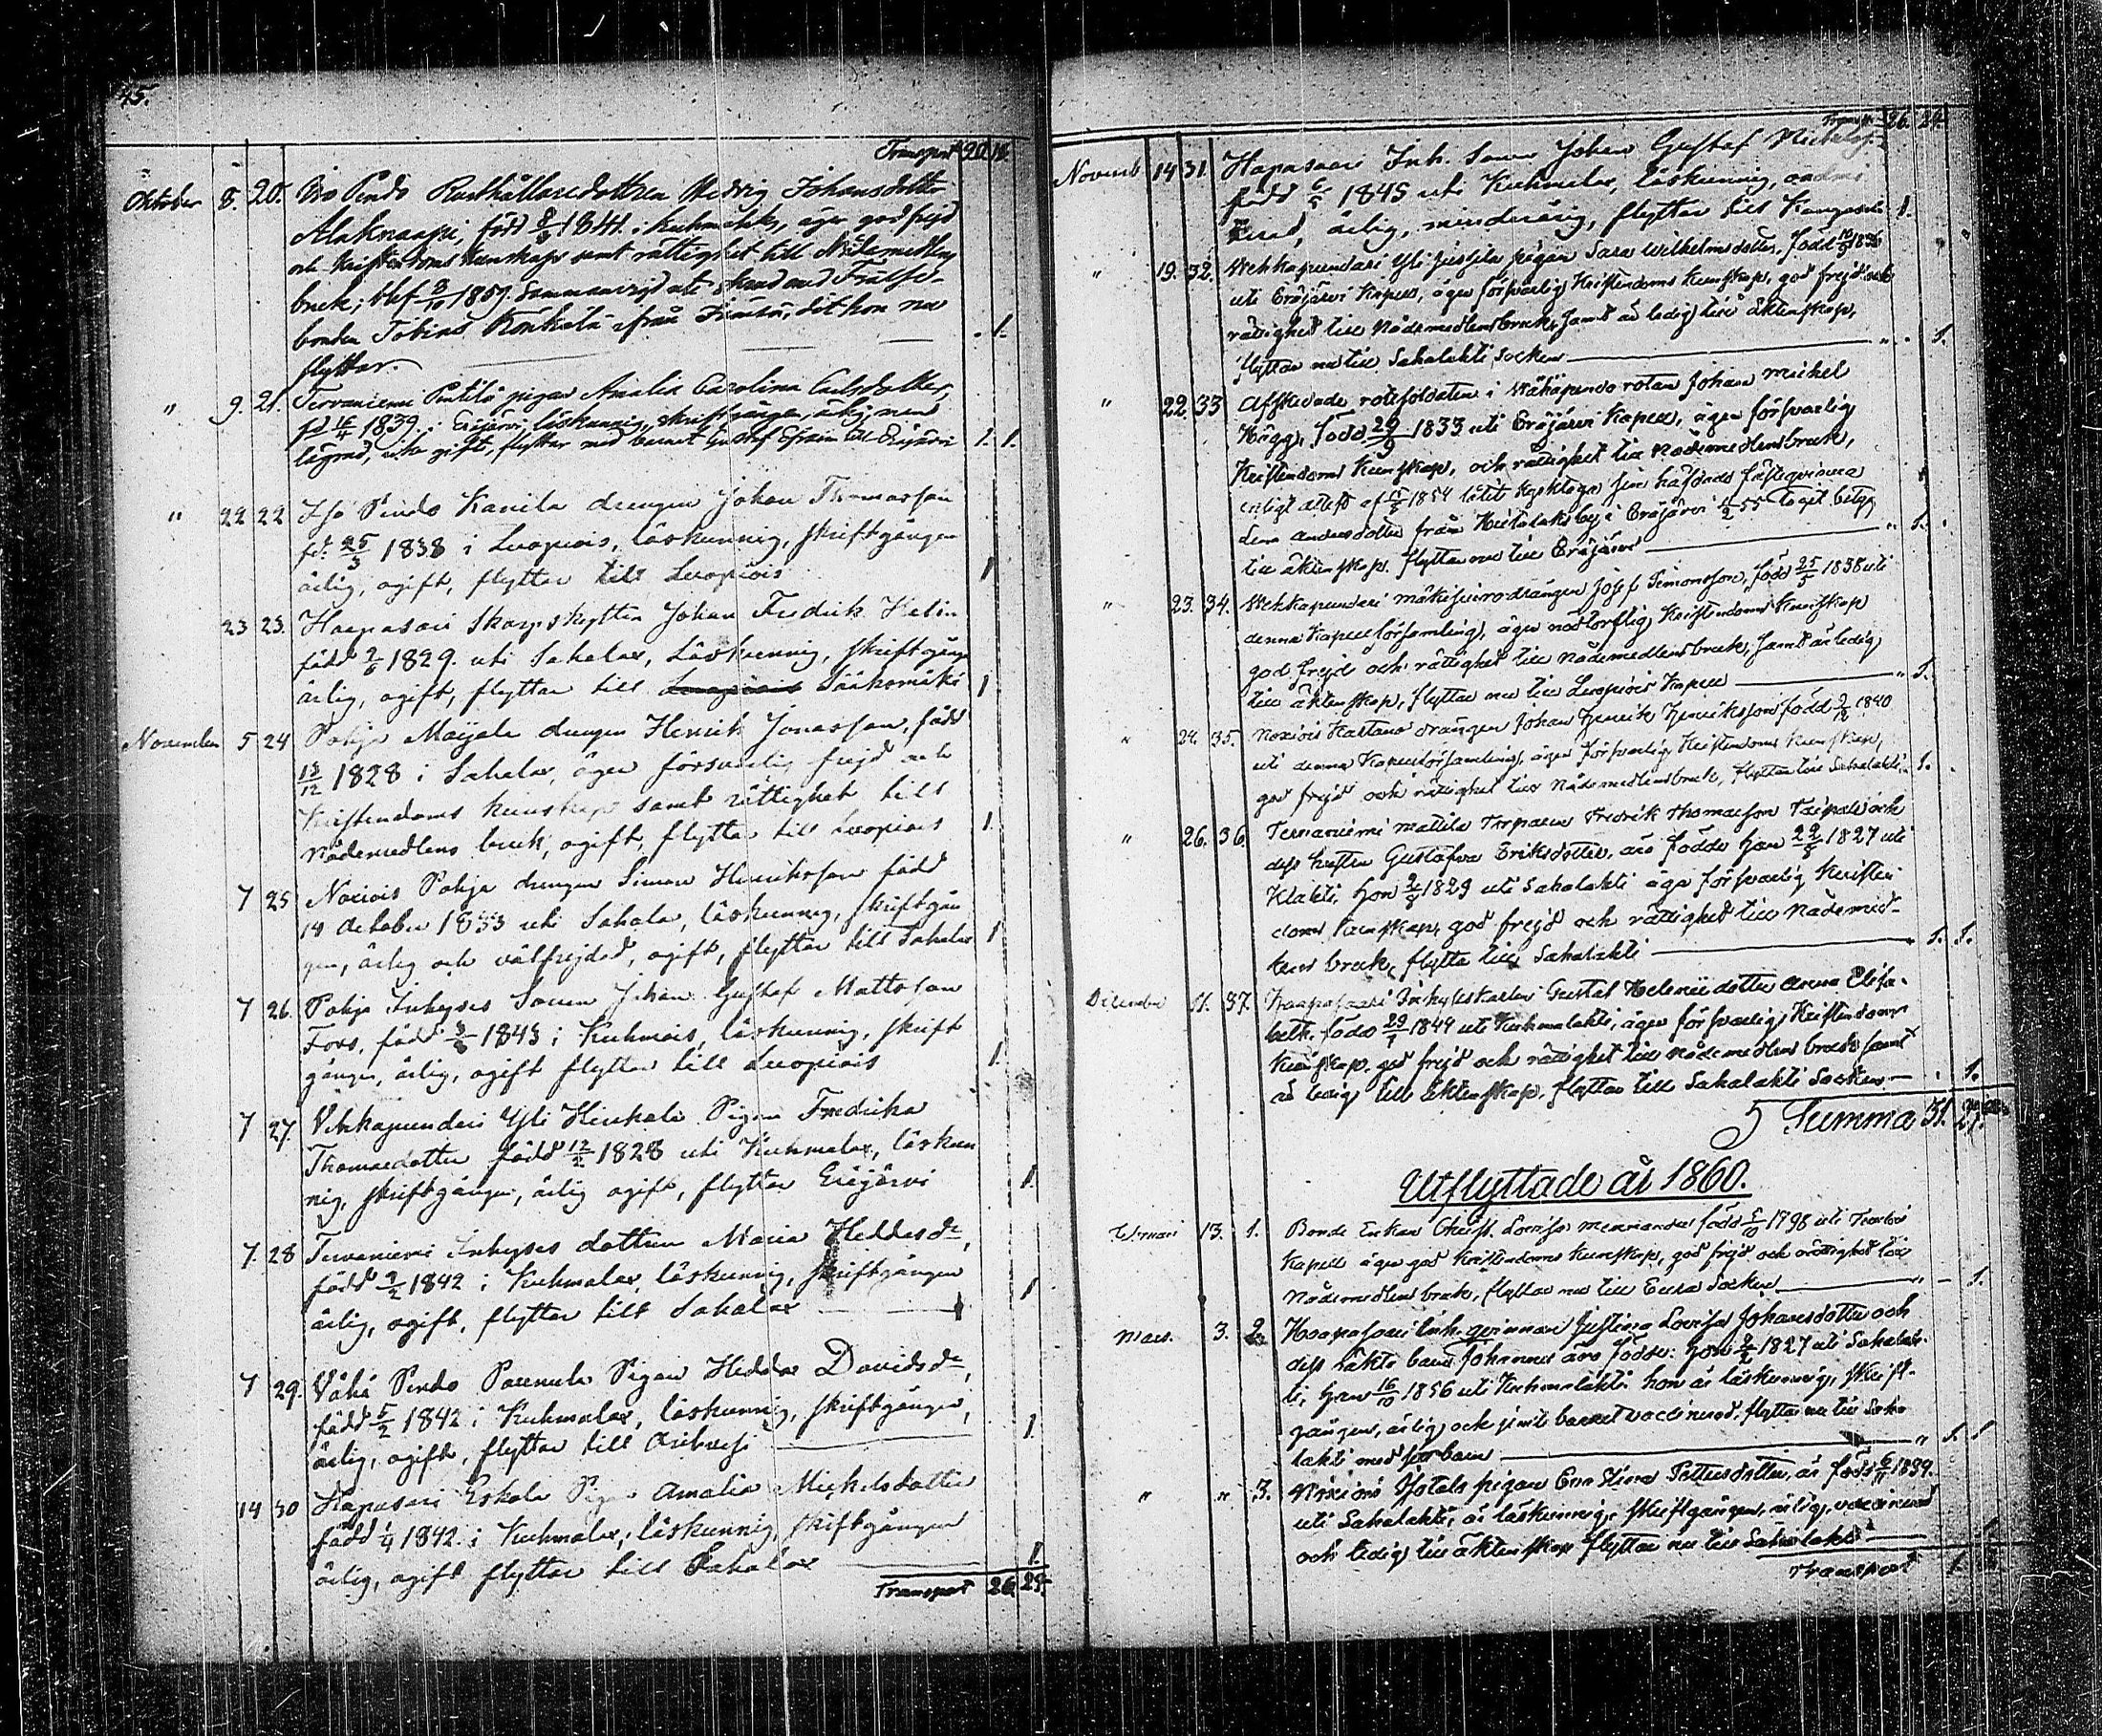 45.
Transport 20. 18.
Oktober 8. 20. Iso Pendo Rusthållaredottren Hedvig Johansdotter
Alaknaapi, född 8/3 1841 i Kuhmalaks, äger god frejd
och Kristendoms kunskap samt rättighet till Nådemedlens
bruk; blef 1859 Sammanvigd med Frälse-
bonden Tobias från Jämsä, dit hon nu
flyttar. 1.
" 9. 21. Tervaniemi Pentilä pigan Amalia Carolina Carlsdotter,
fd 16/4 1839 i Eräjärvi, läskunnig, skriftgången, ärlig, men
lägrad, icke gift, flyttar med barnet Gustaf Efraim till Eräjärvi 1. 1.
" 22 22 Iso Pendo Kauila drengen Johan Thomasson
fd. 25/3 1838 i Luopiois, läskunnig, skriftgången
ärlig, ogift, flyttar till Luopiois 1
23 23. Haapasari Skarpskytten Johan Fredrik Helin
född 2/6 1829. uti Sahalax, Läskunnig, skriftgången
ärlig, ogift, flyttar till Luopiois Sääksmäki 1
November 5 24 Pohja Maijala drengen Henrik Jonasson, född
13/12 1828 i Sahalax, äger försvarlig frejd och
Kristendoms kunskap samt rättighet till
Nådemedlens bruk, ogift, flyttar till Luopiois 1.
7 25 Pohja drengen Simon Henriksson född
14 October 1833 uti Sahala, läskunnig, skriftgån
gen, ärlig och välfrejdad, ogift, flyttar till Sahalax 1
7 26. Pohja Inhyses Sonen Johan Gustaf Mattsson
Fors, född 1843 i Kuhmois, läskunnig, skrift
gången, ärlig, ogift flyttar till Luopiois 1.
7 27. Vehkapundari Yli Heikkilä Pigan Fredrika
Thomasdotter född 12/2 1828 uti Kuhmalax, läskun
nig, skriftgången, ärlig ogift, flyttar Eräjärvi 1.
7. 28 Tervaniemi Inhyses dottren Maria Heddasdr,
född 9/2 1842 i Kuhmalax, läskunnig, skriftgången
ärlig, ogift, flyttar till Sahalax 1
7 29. Vähä Pendo Pigan Hedda Davidsdr,
född 5/2 1842 i Kuhmalax, läskunnig, skriftgången,
ärlig, ogift, flyttar till Orihvesi 1.
14 30 Haapasari Eskola Pigan Amalia Michelsdotter
född 1/4 1842 i Kuhmalax, läskunnig, skriftgången
ärlig, ogift flyttar till Sahalax 1.
Transport 26. 24.
Transp. 26. 24.
Novemb 14 31. Hapasaari Inh. Sonen Johan Gustaf Michelss.
född 1845 uti Kuhmalax, läskunnig,
ärlig, minderårig, flyttar till Kangasala 1.
" 19. 32. Vehkapundari Yli Jussila pigan Sara Wilhelmsdotter, född
uti Eräjärvi Kapell, äger försvarlig Kristendoms Kunskap, god frejd och
rättighet till Nådemedlens bruk, samt är ledig till äktenskap,
flyttar nu till Sahalahti Socken 1.
" 22. 33 Afskedade rotesoldaten i Vähäpendo rotan Johan Michel
Hägg, född 29/9 1833 uti Eräjärvi Kapell, äger försvarlig
Kristendoms Kunskap, och rättighet till Nådemedlens bruk,
enligt attest af 1854 låtit kyrktaga sin häfdade fästeqvinna
Lena Andersdotter från by i Eräjärvi 1/2 55 taget betyg
till äktenskap. flyttar nu till Eräjärvi 1.
" 23. 34. Vehkapundari drängen Josef Simonsson, född 25/5 1838 uti
denna Kapellförsamling, äger nödtorftig Kristendoms Kunskap
god frejd och rättighet till Nådemedlens bruk, samt är ledig
till äktenskap, flyttar nu till Luopiois Kapell 1.
" 24. 35. drängen Johan Henrik Henriksson född 1840
uti denna Kapellförsamling, äger försvarlig Kristendoms Kunskap,
god frejd och rättighet till Nådemedlens bruk, flyttar till Sahalahti 1.
" 26. 36. Tervaniemi Mattila Torparen Fredrik Thomasson Taipale och
dess hustru Gustafva Eriksdotter, äro födda han 22/5 1827 uti
hon 1829 uti Sahalahti äga försvarlig Kristen
doms Kunskap, god frejd och rättighet till Nådemed-
lens bruk, flytta till Sahalahti 1. 1.
December 11. 37. Haapasaari Inhyseskarlen Gustaf Helenii dotter Anna Elisa-
beth, född 29/1 1844 uti Kuhmalahti, äger försvarlig Kristendoms
Kunskap, god frejd och rättighet till Nådemedlens bruk samt
är ledig till äktenskap, flyttar till Sahalahti Socken 1.
Summa 31. 29.
Utflyttade år 1860.
Februari 13. 1. Bonde Enkan Christ. Lovisa född 5/10 1798 uti
Kapell äger god Kristendoms Kunskap, god frejd och rättighet till
Nådemedlens bruk, flyttar nu till Eura Socken 1.
Mars. 3. 2. Haapasaari Inh. qvinnan Justina Lovisa Johansdotter och
dess oäkta barn Johannes äro födde: hon 2/2 1827 uti Sahalah-
ti, han 16/10 1856 uti Kuhmalahti. hon är läskunnig, skrift-
gången, ärlig och jemte barnet vaccinerad, flyttar nu till Saha
lahti med sitt barn 1. 1
" " 3. pigan Eva Stina Pettersdotter, är född 6/11 1839.
uti Sahalahti, är läskunnig, skriftgången, ärlig, vaccinerad
och ledig till äktenskap flyttar nu till Sahalahti
Transport 1.